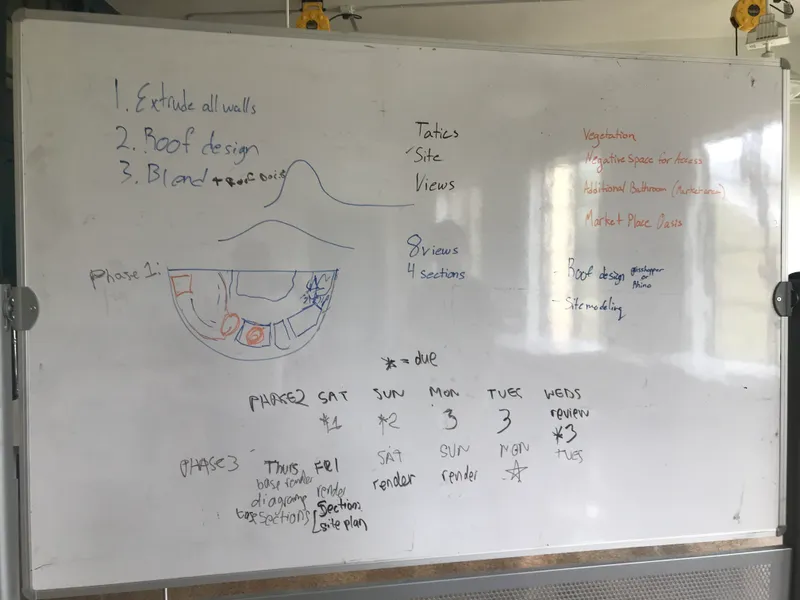 1. Extrude all walls
2. Roof design
3. Blend + Roof Oasis
Tatics
Site
Views
8 views
4 sections
Vegetation
Negative Space for Access
Additional Bathroom (Market area)
Market Place Oasis
- Roof design grasshopper or Rhino
- Site modeling
Phase 1:
* = due
PHASE 2 SAT SUN MON TUES WEDS
*1 *2 3 3 review
*3
PHASE 3 Thurs FRI SAT SUN MON TUES
base render render render render ☆
diagrams section
base sections site plan